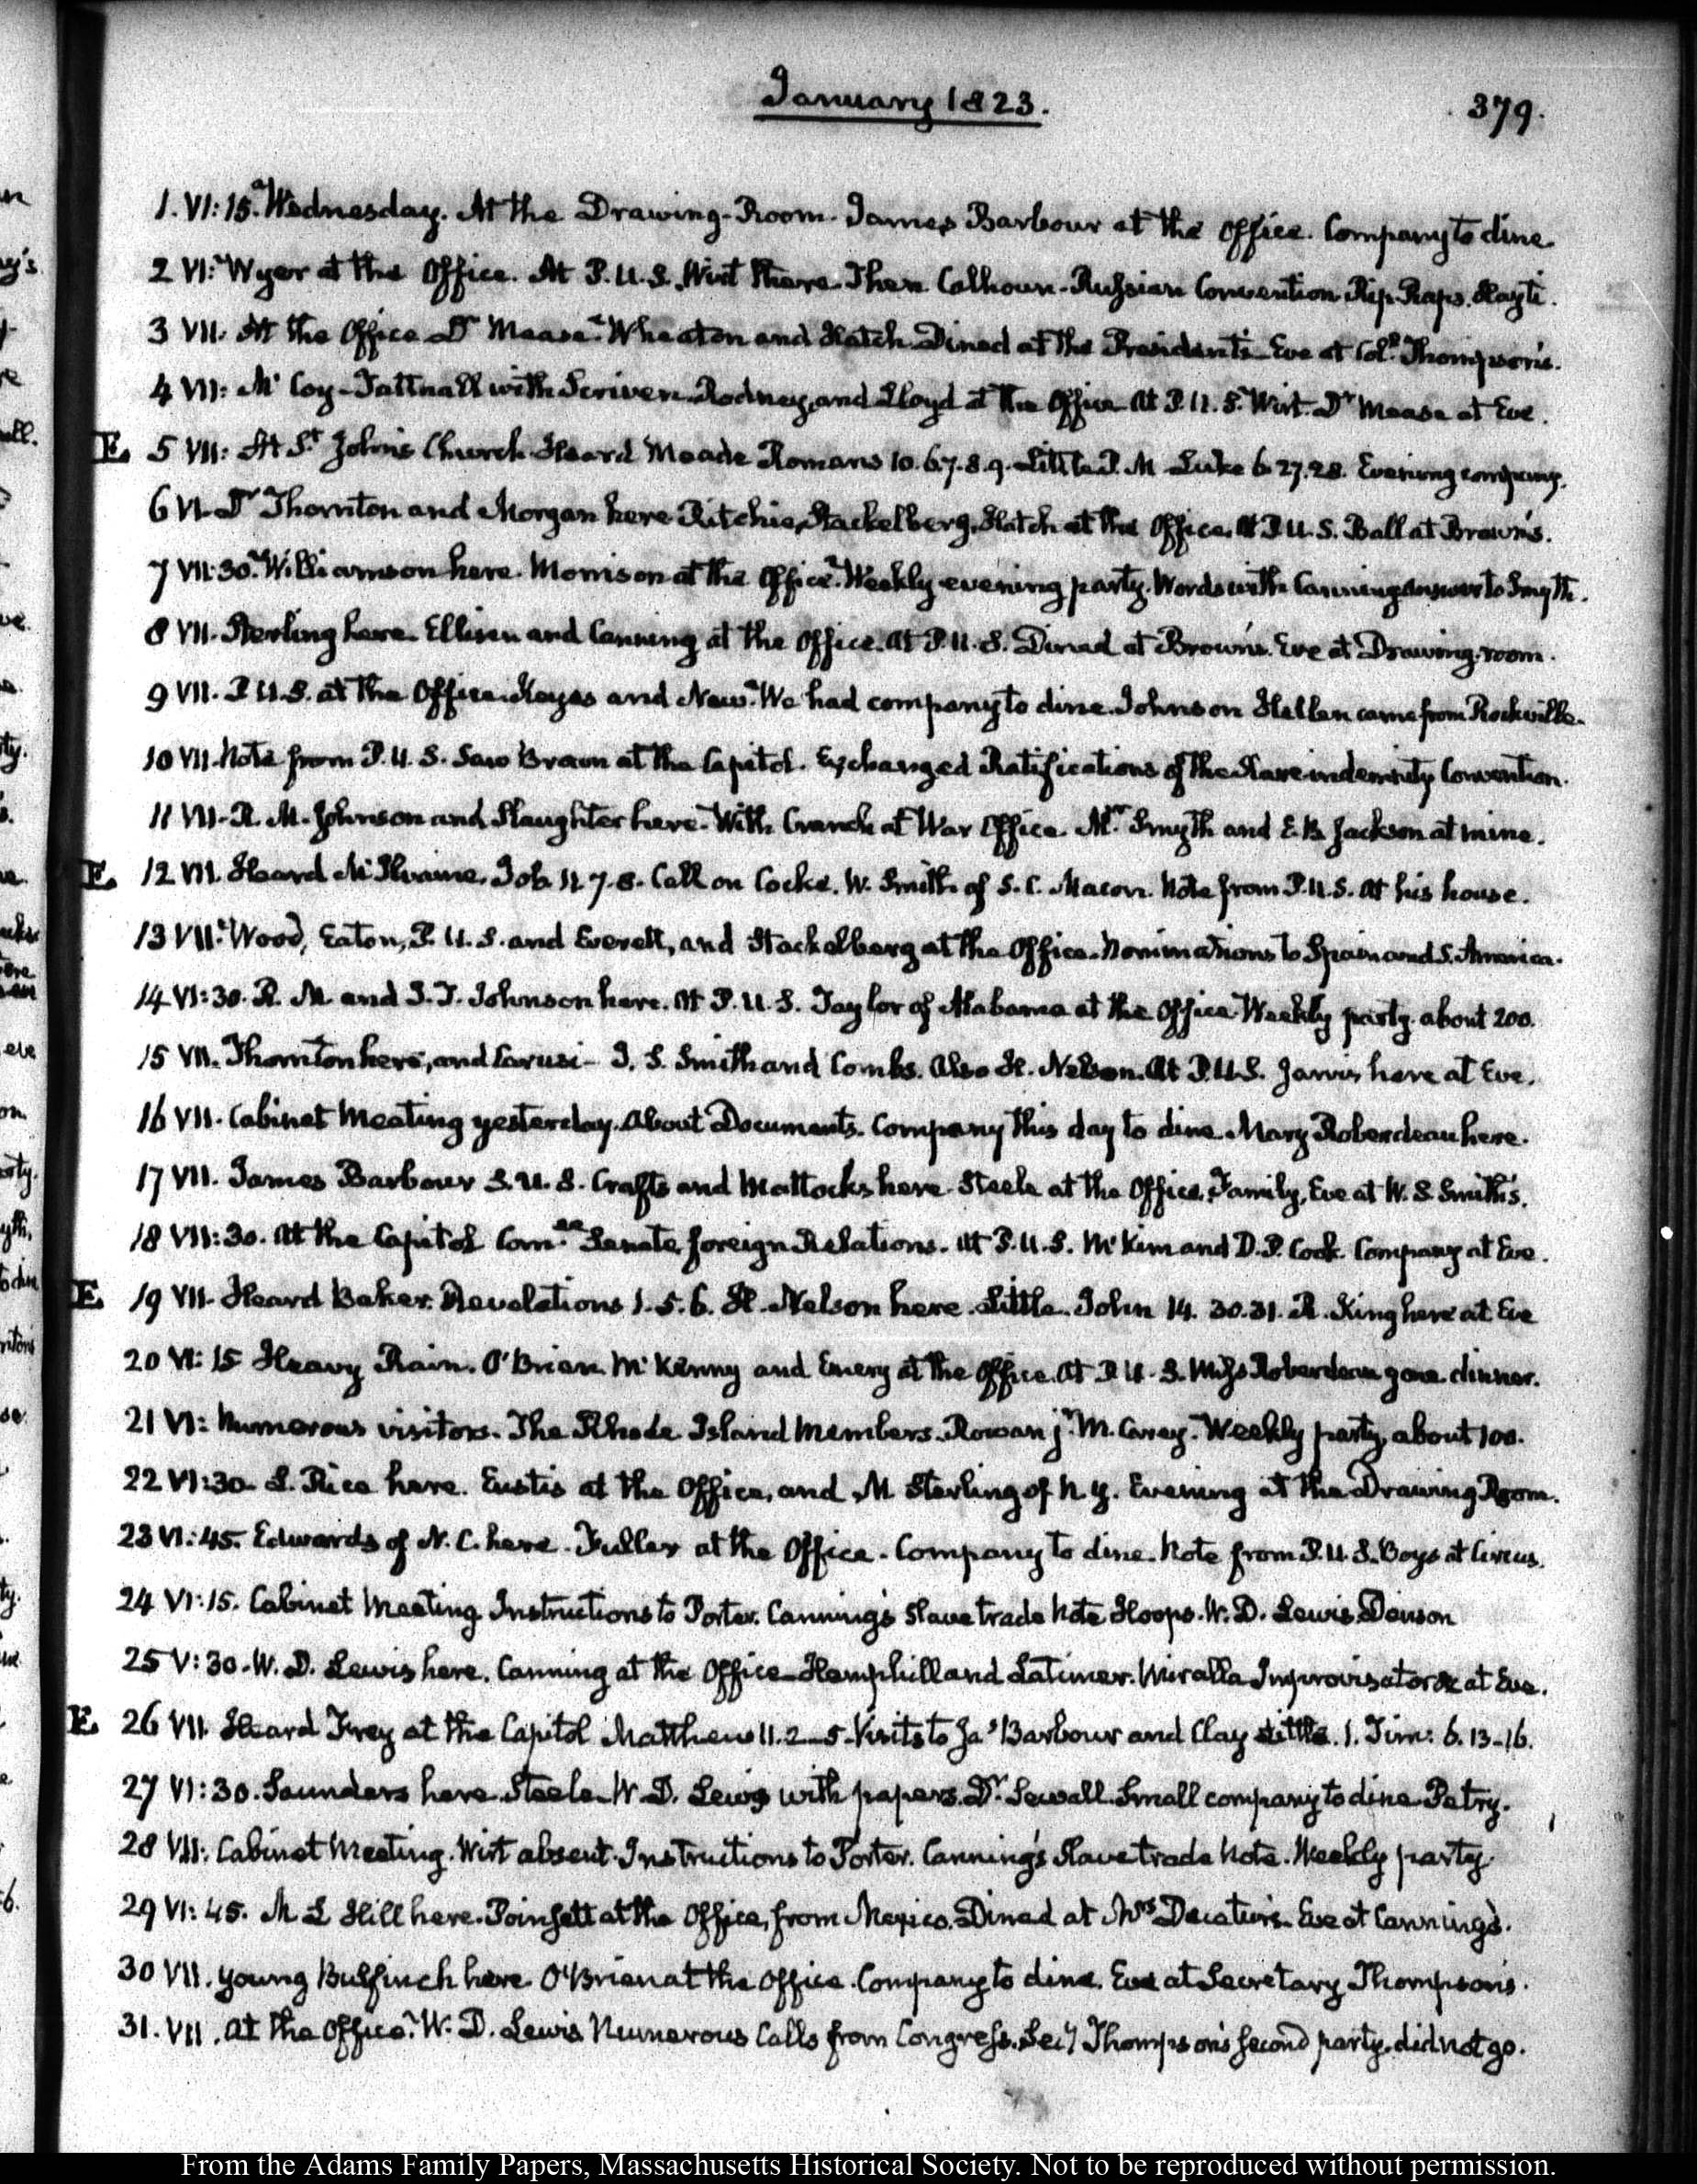 January 1823.
379.
1. VI:15. Wednesday. At the Drawing-Room. James Barbour at the Office. Company to dine.
2 VI: Wyer at the Office. At P.U.S. Wirt there. Then Calhoun. Russian Convention Rip-Raps. Hayti.
3 VII. At the Office Dr Mease. Wheaton and Hatch. Dined at the President's. Eve at Col. Thompson's.
4 VII: McCoy-Tattnall with Scriven. Rodney, and Lloyd at the Office. At P.U.S. Wirt. Dr Mease at Eve.
E. 5 VII: At St John's Church. Heard Meade Romans 10.6.7.8.9. Little P.M. Luke 6. 27.28. Evening company.
6 VI. Dr Thornton and Morgan here. Ritchie, Stackelberg, Hatch at the Office. At P.U.S. Ball at Brown's.
7 VII:30. Williamson here. Morrison at the Office. Weekly evening party. Words with Canning answer to Smyth.
8 VII. Sterling here. Ellison and Canning at the Office. At P.U.S. Dined at Brown's. Eve at Drawing-room.
9 VII. P.U.S. at the Office. Keyes and New. We had company to dine. Johnson Hellen came from Rockville.
10 VII. Note from P.U.S. Saw Brown at the Capitol. Exchanged Ratifications of the Slave indemnity Convention.
11 VII. R. M. Johnson and Slaughter here. With Cranch at War Office. Mr Smyth and E. B. Jackson at mine.
E. 12 VII. Heard McIlvaine. Job 11. 7.8. Call on Cocke. W. Smith of S. C. Macon. Note from P.U.S. At his house.
13 VII: Wood, Eaton, P.U.S. and Everett, and Stackelberg at the Office. Nominations to Spain and S. America.
14 VI:30. R. M. and J. T. Johnson here. At P.U.S. Taylor of Alabama at the Office. Weekly party. about 200.
15 VII. Thornton here, and Carusi - J. S. Smith and Combs. Also H. Nelson. At P.U.S. Jarvis here at Eve.
16 VII. Cabinet Meeting yesterday. About Documents. Company this day to dine. Mary Roberdeau here.
17 VII. James Barbour S.U.S. Crafts and Mattocks here. Steele at the Office. Family, Eve at W. S. Smith's.
18 VII:30. At the Capitol Comee Senate foreign Relations. At P.U.S. McKim and D. P. Cook. Company at Eve.
E. 19 VII. Heard Baker. Revelations 1. 5.6. H. Nelson here. Little. John 14. 30.31. R. King here at Eve
20 VI:15 Heavy Rain. O'Brien. McKenny and Emery at the Office. At P.U.S. Miss Roberdeau gone dinner.
21 VI: Numerous visitors. The Rhode Island members. Rowan jr. M. Carey. Weekly party, about 100.
22 VI:30. L. Rice here. Eustis at the Office, and M Sterling of N.Y. Evening at the Drawing Room.
23 VI:45. Edwards of N. C. here. Fuller at the Office. Company to dine. Note from P.U.S. Boys at Circus.
24 VI:15. Cabinet Meeting. Instructions to Porter. Canning's Slave trade Note. Hoops. W. D. Lewis. Denison
25 V:30. W. D. Lewis here. Canning at the Office. Hemphill and Latimer. Miralla Improvisatore at Eve.
E. 26 VII. Heard Frey at the Capitol Matthew 11. 2-5. Visits to Jas Barbour and Clay Little. 1. Tim: 6. 13-16.
27 VI:30. Saunders here. Steele. W. D. Lewis with papers. Dr Sewall. Small company to dine. Petry.
28 VII: Cabinet Meeting. Wirt absent. Instructions to Porter. Canning's Slave trade Note. Weekly party.
29 VI:45. M L Hill here. Poinsett at the Office, from Mexico. Dined at Mrs Decatur's. Eve at Canning's.
30 VII. Young Bulfinch here. O'Brien at the Office. Company to dine. Eve at Secretary Thompson's.
31. VII. At the Office. W. D. Lewis. Numerous Calls from Congress. Secy Thompson's second party. did not go.
From the Adams Family Papers, Massachusetts Historical Society. Not to be reproduced without permission.